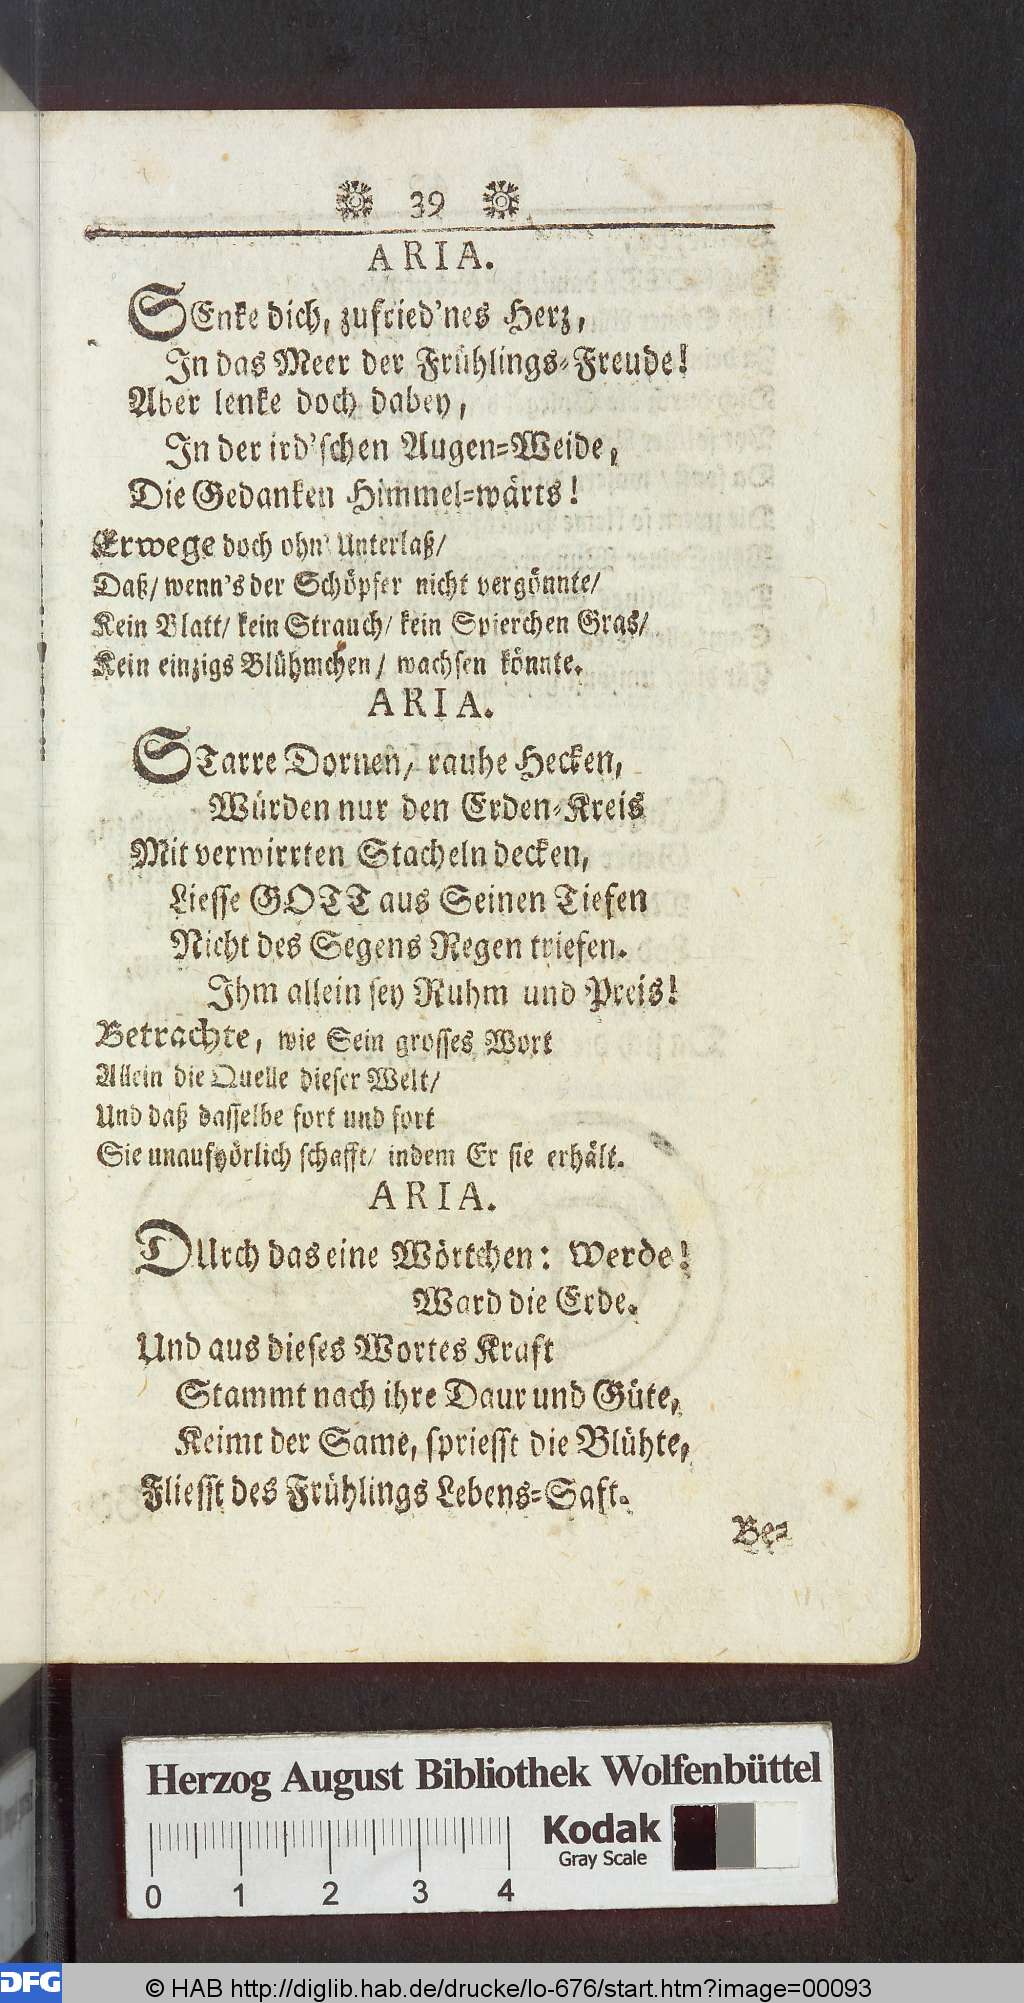 39
ARIA.
SEnke dich, zufried'nes Herz,
In das Meer der Frühlings-Freude!
Aber lenke doch dabey,
In der ird'schen Augen-Weide,
Die Gedanken Himmel-wärts!
Erwege doch ohn' Unterlaß/
Daß/ wenn's der Schöpfer nicht vergönnte/
Kein Blatt/ kein Strauch/ kein Spierchen Gras/
Kein einzigs Blühmchen/ wachsen könnte.
ARIA.
STarre Dornen/ rauhe Hecken,
Würden nur den Erden-Kreis
Mit verwirrten Stacheln decken,
Liesse GOTT aus Seinen Tiefen
Nicht des Segens Regen triefen.
Ihm allein sey Ruhm und Preis!
Betrachte, wie Sein grosses Wort
Allein die Quelle dieser Welt/
Und daß dasselbe fort und fort
Sie unaufhörlich schafft/ indem Er sie erhält.
ARIA.
DUrch das eine Wörtchen: Werde!
Ward die Erde.
Und aus dieses Wortes Kraft
Stammt nach ihre Daur und Güte,
Keimt der Same, spriesst die Blühte,
Fliesst des Frühlings Lebens-Saft.
Be-
Herzog August Bibliothek Wolfenbüttel
Kodak
Gray Scale
0 1 2 3 4
DFG
© HAB http://diglib.hab.de/drucke/lo-676/start.htm?image=00093